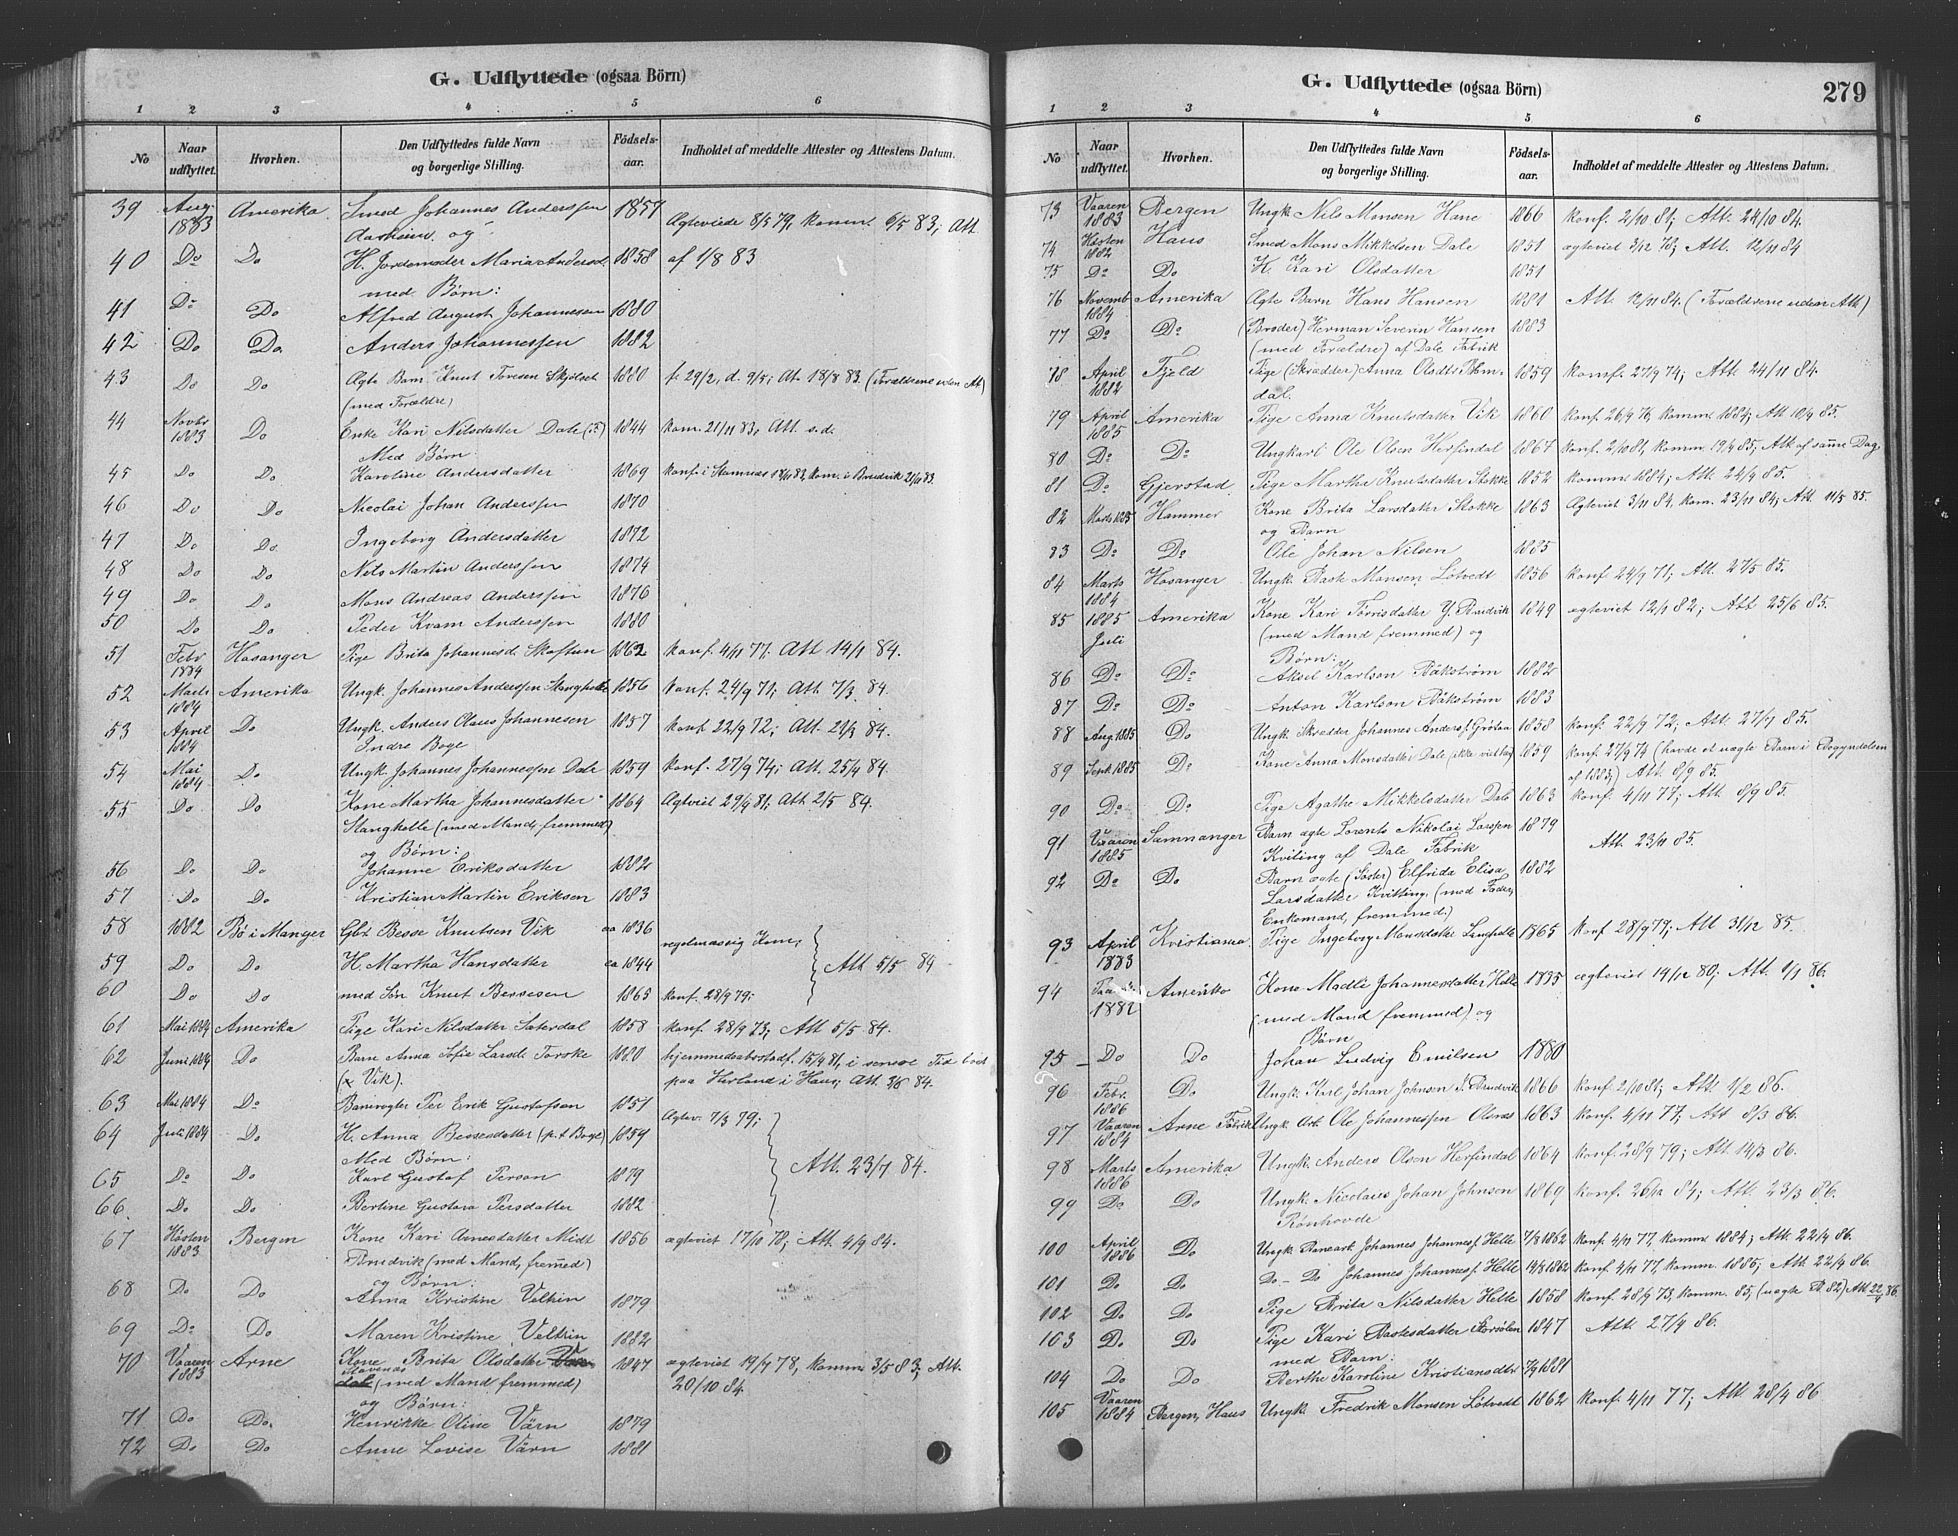 G. Udflyttede (ogsaa Börn)
1 2 3 4 5 6
No Naar udflyttet. Hvorhen. Den Udflyttedes fulde Navn og borgerlige Stilling. Födsels-aar. Indholdet af meddelte Attester og Attestens Datum.
39 Aug. 1883 Amerika Smed Johannes Anderssen 1857 Ægteviede 8/5 79, komm. 6/5 83; Att.
og
40 Do Do H. Jordemoder Maria Andersd. 1858 af 1/8 83
med Börn:
41 Do Do Alfred August Johannesen 1880
42 Do Do. Anders Johannessen 1882
43 Do Do Ægte Barn Knut Toresen 1880 f. 29/2, d. 9/5; At. 18/8 83. (Forældrene uden At)
(med Forældre)
44 Novbr 1883 Do Enke Kari Nilsdatter Dale 1844 kom. 21/11 83; Att. s.d.
Med Börn:
45 Do Do Karoline Andersdatter 1869 konf. i Stamnæs kom. i Bruvik 21/11 83.
46 Do Do Nicolai Johan Anderssen 1870
47 Do Do. Ingeborg Andersdatter 1872
48 Do Do Nils Martin Anderssen 1874
49 Do Do Mons Andreas Anderssen 1876
50 Do Do Peder Kvam Anderssen 1880
51 Febr 1884 Hosanger Pige Brita Johannesd. Skaftun 1862 konf. 4/11 77; Att 14/1 84.
52 Marts 1884 Amerika Ungk. Johannes Anderssen Stanghelle 1856 konf. 24/9 71; Att. 7/3 84.
53 April 1884 Do Ungk. Anders Olaus Johannesen 1857 konf. 22/9 72; Att. 29/3 84.
Indre Boge
54 Mai 1884 Do Ungk. Johannes Johannessen Dale 1859 konf. 27/9 74; Att. 25/4 84.
55 Do Do Kone Martha Johannesdatter 1864 Ægteviet 29/4 81. Att. 2/5 84.
Stanghelle (med Mand, fremmed)
og Börn:
56 Do Do Johanne Eriksdatter 1882
57 Do Do Kristian Martin Eriksen 1883
58 1882 Bö i Manger Gbr. Besse Knutsen Vik ca 1836 regelmæssig Kom,
59 Do Do H. Martha Hansdatter ca 1844 Att 5/5 84
60 Do Do med Sön Knut Bessesen 1865 konf. 28/9 79;
61 Mai 1884 Amerika Pige Kari Nilsdatter Saterdal 1858 konf. 28/9 73; Att 5/5 84.
62 Juni 1884 Do Barn Anna Sofie Larsdr Torske 1880 hjemmedøbt stadf. 15/4 81, i senere Tid boet
(x Vik). paa Herland i Haus; Att. 3/6 84.
63 Mai 1884 Do Banevogter Per Erik Gustafsen 1851 Ægtev. 7/3 79;
64 Juli 1884 Do H. Anna Bessesdatter (p.t. Boge) 1859
Med Börn:
65 Do Do Karl Gustaf Person 1879 Att. 23/7 84.
66. Do Do Bertine Gustava Persdatter 1882
67 Hösten 1883 Bergen Kone Kari Arnesdatter Midt 1856 ægteviet 17/10 78; Att. 4/9 84.
Bruvik (med Mand, fremmed)
og Börn:
68 Do Do Anna Kristine Veltzin 1879
69 Do Do Maren Kristine Veltzin 1882
70 Vaaren 1883 Arne Kone Brita Olsdatter 1847 ægteviet 19/7 78, komm. 3/5 83; Att.
(med Mand fremmed) 20/10 84.
og Börn:
71 Do Do. Henrikke Oline Värn 1879
72 Do Do Anne Lovise Värn 1881
G. Udflyttede (ogsaa Börn)
279
1 2 3 4 5 6
No Naar udflyttet. Hvorhen. Den Udflyttedes fulde Navn og borgerlige Stilling. Födsels-aar. Indholdet af meddelte Attester og Attestens Datum.
73 Vaaren 1883 Bergen Ungk. Nils Monsen Hane 1866 konf. 2/10 81; Att. 24/10 84.
74 Hösten 1882 Haus Smed Mons Mikkelsen Dale 1851 ægteviet 3/12 78; Att. 12/11 84
75 Do Do H. Kari Olsdatter 1851
76 Novemb 1884 Amerika Ægte Barn Hans Hansen 1881 Att. 12/11 84. (Forældrene uden Att)
77 Do Do (Broder) Herman Severin Hansen 1883
(med Forældre) af Dale Fabrik
78 April 1882 Fjeld Pige (Skrædder) Anna Olsdtr Blom- 1859 konf. 27/9 74; Att. 24/11 84.
dal.
79 April 1885 Amerika Pige Anna Knutsdatter Vik 1860 konf. 26/9 76, komm. 1884; Att. 10/4 85.
80 Do Do Ungkarl Ole Olsen Herfindal 1867 konf. 2/10 81, komm. 19/4 85; Att af samme Dag.
81 Do Gjerstad Pige Martha Knutsdatter Stokke 1852 komm. 1884; Att. 24/4 85.
82 Marts 1885 Hammer Kone Brita Larsdatter Stokke 1863 Ægteviet 3/11 84, kom. 23/11 84; Att. 11/5 85.
og Barn
83 Do Do Ole Johan Nilsen 1885
84 Marts 1884 Hosanger Ungk. Monsen Lötvedt 1856 konf. 24/9 71; Att. 27/5 85.
85 1885 Juli Amerika Kone Kari Törrisdatter Y. Bruvik 1849 ægteviet 12/1 82; Att 25/6 85.
(med Mand fremmed) og
Börn:
86 Do Do Aksel Karlsen Bäkström 1882
87 Do Do Anton Karlson Bäkström 1883
88 Aug. 1885 Do Ungk. Skrædder Johannes Anders. 1858 konf. 22/9 72; Att. 27/7 85.
89 Sept. 1885 Do Kone Anna Monsdatter Dale (ikke viet her) 1859 konf. 27/9 74 (havde et uægte Barn i Begyndelsen
af 1883) Att. 8/9 85.
90 Do Do Pige Agathe Mikkelsdatter Dale 1863 konf. 4/11 77; Att. 8/9 85.
91 Vaaren 1885 Samnanger Barn ægte Lorents Nikolai Larssen 1879 Att. 23/11 85.
Kviting af Dale Fabrik
92 Do Do Barn ægte (Söster) Elfrida Elisa 1882
Larsdatter Kvitting. (med Fader,
Enkemand, fremmed.)
93 April 1883 Kristiania Pige Ingeborg Monsdatter Langhelle 1865 konf 28/9 79; Att 31/12 85.
94 1882 Amerika Kone Madli Johannesdatter Helle 1835 ægteviet 19/12 80; Att. 9/1 86.
(med Mand fremmed) og
Börn
95 Do Do Johan Ludvig Emilsen 1880
96 Febr. 1886 Do Ungk. Karl Johan Johnsen I. Bruvik 1866 konf. 2/10 81; Att. 1/2 86.
97 Vaaren 1884 Arne Fabrik Ungk. Arb. Ole Johannessen Olsnæs 1863 konf. 4/11 77; Att. 8/3 86.
98 Marts 1886 Amerika Ungk. Anders Olsen Herfindal 1864 konf. 28/9 79; Att. 14/3 86.
99 Do Do Ungk. Nicolaus Johan Johnson 1869 konf. 26/10 84; Att. 23/3 86.
Rönhovde
100 April 1886 Do Ungk. Banearb. Johannes Johannes. Helle 7/3 1862 konf. 4/11 77, komm. 1884; Att. 22/4 86.
101 Do Do Do - Do Johannes Johannes. Helle 1862 konf. 4/11 77, komm. 1885; Att 22/4 86.
102 Do Do Pige Brita Nilsdatter Helle 1858 konf. 28/9 73, komm. 85; (uægte B. 82) Att 22/4 86.
103 Do Do Pige Kari 1847 Att. 27/4 86.
med Barn:
104 Do Do Berthe Karoline Kristiansdtr 1881
105 Vaaren 1884 Bergen, Haus Ungk. Fredrik Monsen Lötvedt 1862 konf. 4/11 77; Att 28/4 86